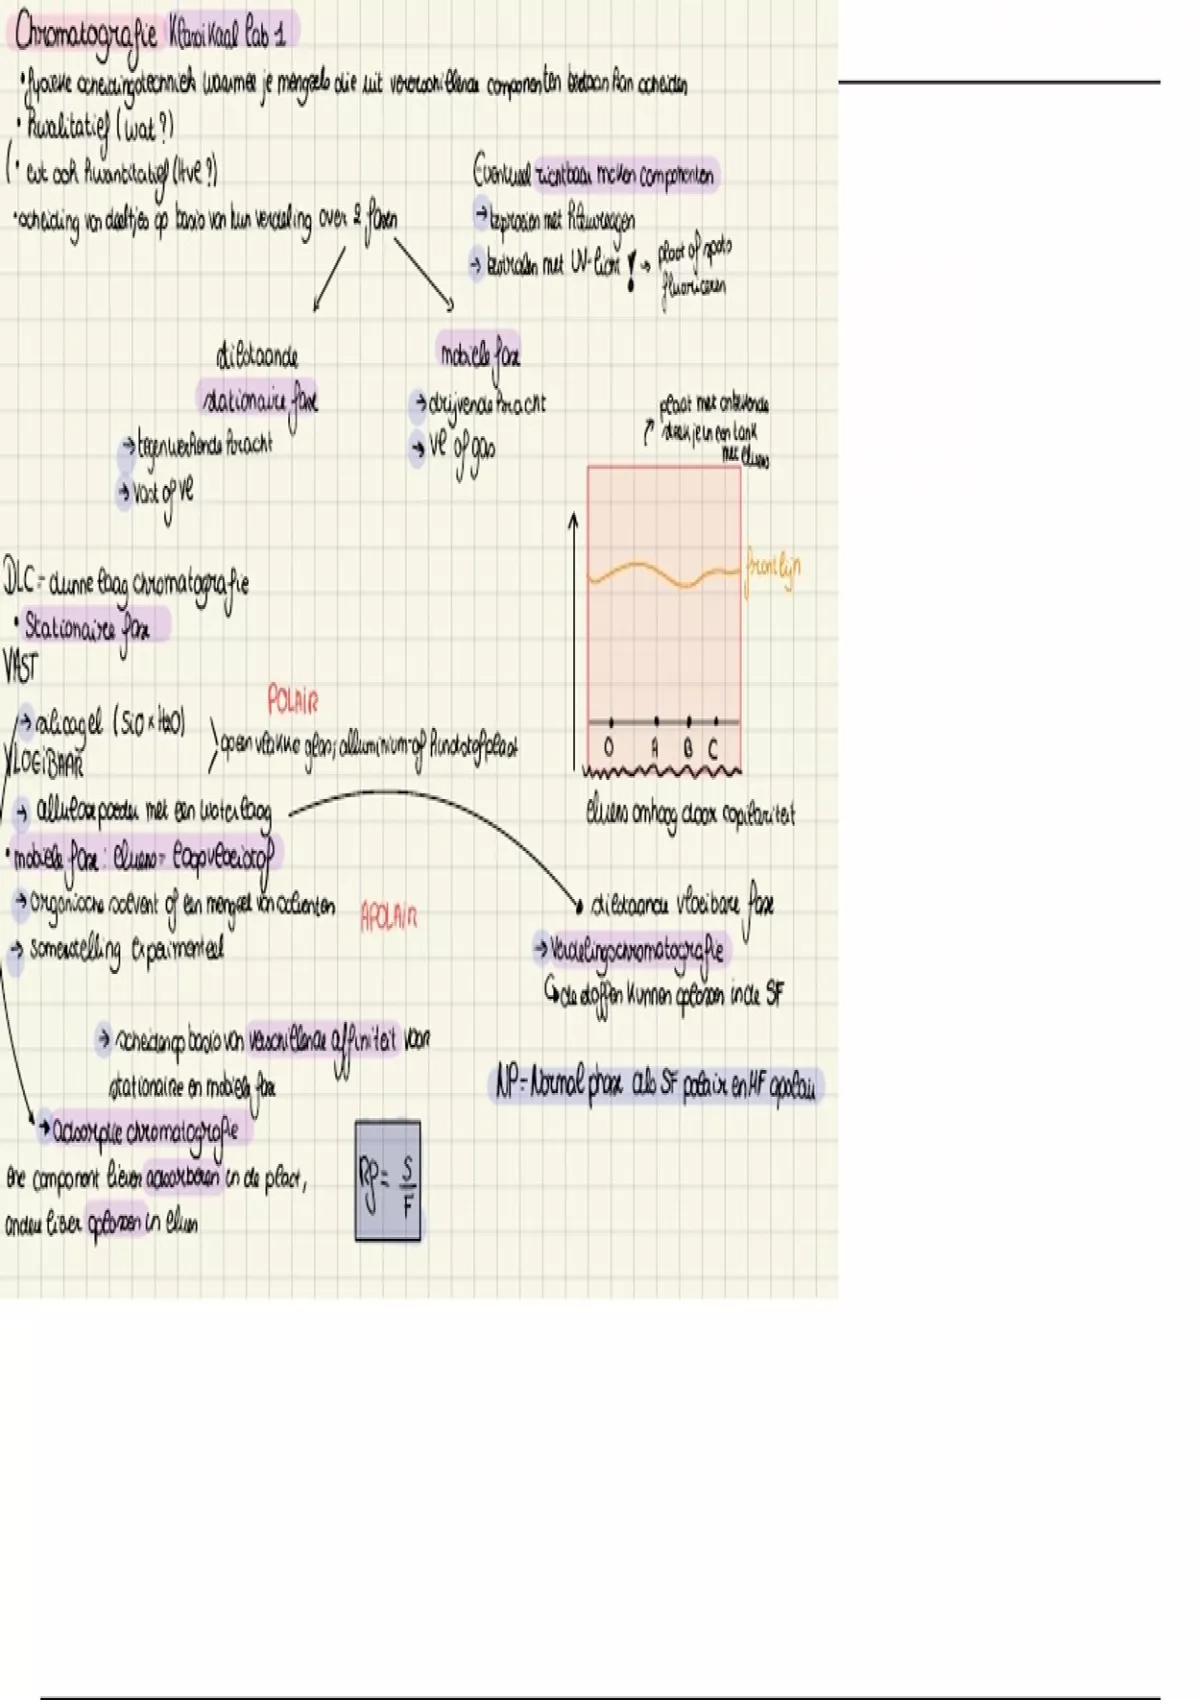 Chromatografie Klassikaal lab 1
• fysieke scheidingstechniek waarmee je mengsels die uit verschillende componenten bestaan kan scheiden
• Kwalitatief (wat?)
(• evt ook kwantitatief (Hve?)
• scheiding van deeltjes op basis van hun verdeling over 2 fasen
Eventueel zichtbaar maken componenten
→ besproeien met kleurreagen
→ bestralen met UV-licht ! → plaat of spots
fluoriceren
stilstaande
stationaire fase
→ tegenwerkende kracht
→ vast of vl
mobiele fase
→ drijvende kracht
→ vl of gas
plaat met onbekende
↗ steek je in een tank
met eluens
frontlijn
O A B C
eluens omhoog door capilariteit
DLC = dunne laag chromatografie
• Stationaire fase
VAST
→ silicagel (SiO x H2O)
POLAIR
op een vlakke glas; alluminium- of kunstofplaat
VLOEIBAAR
→ allulose poeder met een waterlaag
• mobiele fase: eluens = loopvloeistof
→ organische solvent of een mengsel van solventen
APOLAIR
→ samenstelling experimenteel
• stilstaande vloeibare fase
→ Verdelingschromatografie
↳ de stoffen kunnen oplossen in de SF
→ scheiden op basis van verschillende affiniteit voor
stationaire en mobiele fase
NP = Normal phase als SF polair en MF apolair
→ adsorptie chromatografie
ene component liever adsorberen in de plaat,
andere liever oplossen in eluen
Rf = S
F